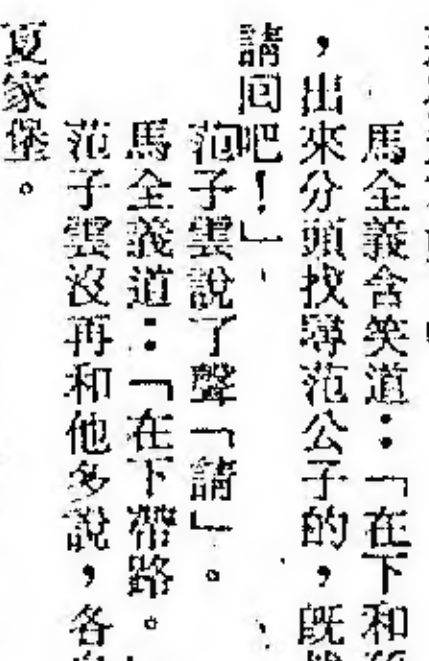 馬全義含笑道：「在下和
，出來分頭找尋范公子的，既
請回吧！」
范子雲說了聲「請」。
馬全義道：「在下帶路。
范子雲沒再和他多說，各
夏家堡。